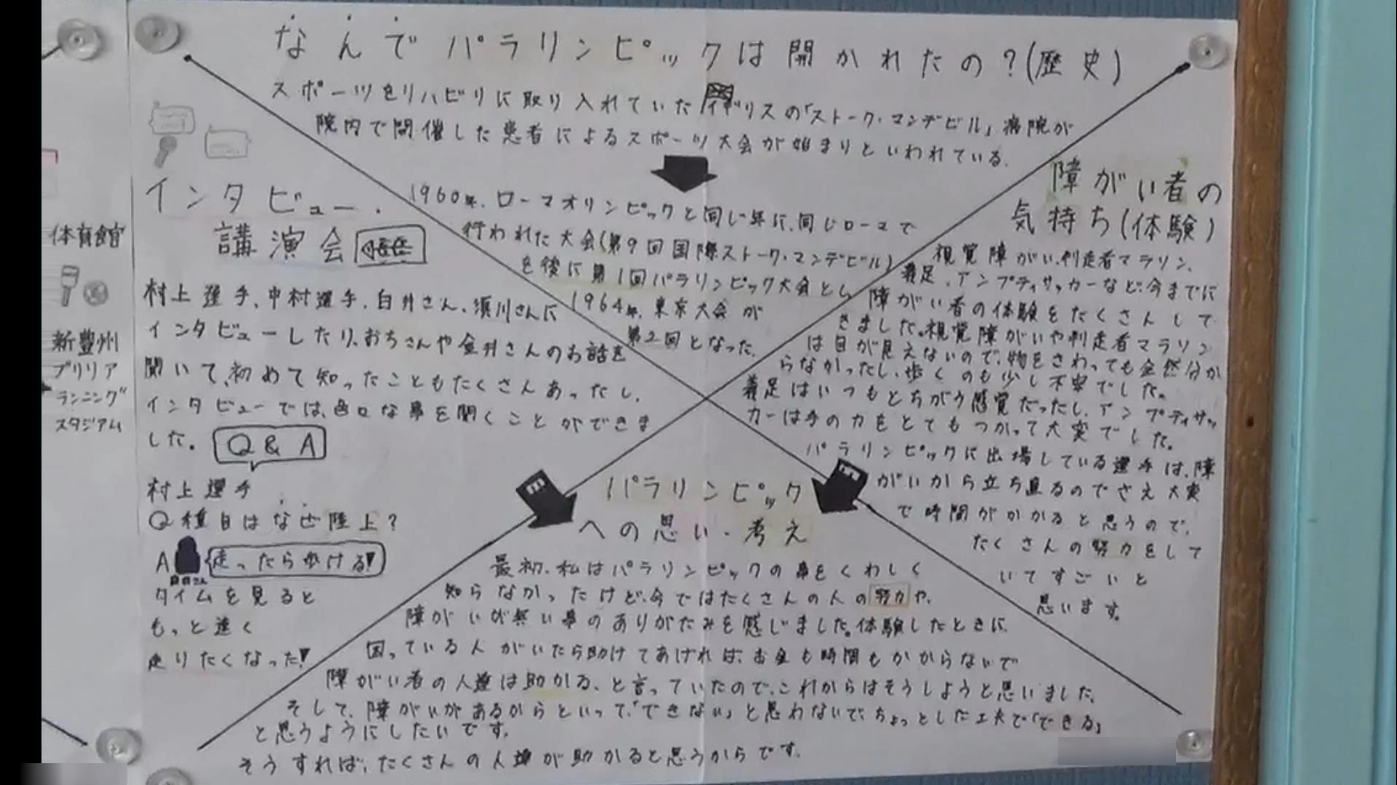 なんでパラリンピックは開かれたの?(歴史)
スポーツをリハビリに取り入れていたイギリスの「ストーク・マンデビル」病院が
院内で開催した患者によるスポーツ大会が始まりといわれている。
1960年、ローマオリンピックと同じ年に、同じローマで
行われた大会(第9回国際ストーク・マンデビル)
を後に第1回パラリンピック大会とし
1964年、東京大会が
第2回となった。
インタビュー.
講演会
村上選手、中村選手、臼井さん、須川さんに
インタビューしたり、おちさんや金井さんのお話を
聞いて、初めて知ったこともたくさんあったし、
インタビューでは、色々な事を聞くことができま
した。
Q&A
村上選手
Q種目はなぜ陸上?
A 走ったら歩ける!
タイムを見ると
もっと速く
走りたくなった!
障がい者の
気持ち(体験)
視覚障がい、伴走者マラソン、
義足、アンプティサッカーなど、今までに
障がい者の体験をたくさんして
きました。視覚障がいや伴走者マラソン
は目が見えないので、物をさわっても全然分か
らなかったし、歩くのも少し不安でした。
義足はいつもとちがう感覚だったし、アンプティサッ
カーは手の力をとてもつかって大変でした。
パラリンピックに出場している選手は、障
がいから立ち直るのでさえ大変
で時間がかかると思うので、
たくさんの努力をして
いてすごいと
思います。
パラリンピック
への思い・考え
最初、私はパラリンピックの事をくわしく
知らなかったけど、今ではたくさんの人の努力や、
障がいが無い事のありがたみを感じました。体験したときに、
困っている人がいたら助けてあげれば、お金も時間もかからないで
障がい者の人達は助かる、と言っていたので、これからはそうしようと思いました。
そして、障がいがあるからといって、「できない」と思わないで、ちょっとした工夫で「できる」
と思うようにしたいです。
そうすれば、たくさんの人達が助かると思うからです。
体育館
新豊洲
ブリリア
ランニング
スタジアム